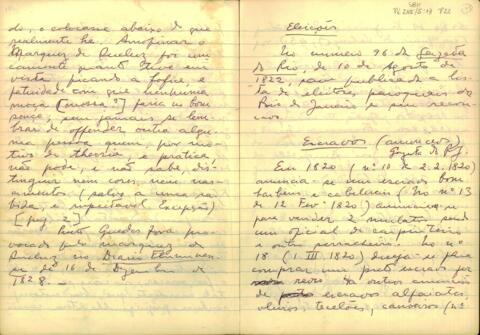 do, o collocasse abaixo de que
realmente he. Anofinar o
Marquez de Queluz foi um
camente quanto tive em
vista, picando a fofice, e
fatuidade com que nenhuma
moça [mossa?] faria no bom
senço, sem jamais se lem
brar de offender outra algu
ma pessoa quem, por mo
tivos de theoria, e pratica
não pode, e não sabe, dis
tinguir nem cores, nem nas
cimentos (salva a unica sa
bida, e respeitavel excepção)
[pag. 2]
Pinto Guedes fora pro
vocado pelo marquez de
Queluz no Diario Fluminen
se de 16 de Dezembro de
1828.—
SBH
Pi 255/5:17 P22
Eleições
No numero 96 da Gazeta
do Rio, de 10 de Agosto de
1822, sae publicada a lis
ta de eleitores parochiaes do
Rio de Janeiro e seu recon
cavo.
Escravos (annuncios)
Gazeta do R.J.
Em 1820 (nº 10 de 2.2.1820)
annuncia-se um escravo bom
barbeiro e cabelleireiro (No nº 13
de 12 Fevº 1820) annuncia-se
para vender 2 mulatos sendo
um oficial de carpinteiro
e outro
No nº
18 (1.III.1820) deseja-se
comprar um preto escravo por
Da outros annuncios
de preto escravos alfaiates,
oleiros, tecelões, canoeiros (nº